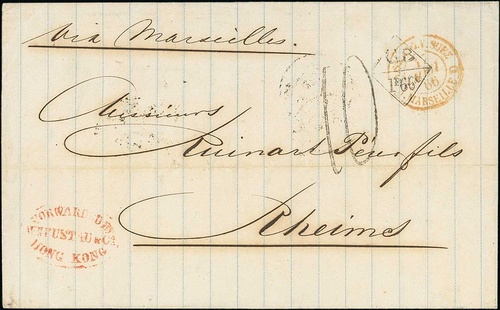 Via Marseilles.
Messieurs
Ruinart Père & fils
Rheims
10
G.B.
1F66
MARSEILLE
66
FORWARDED BY
PUSTAU & Co.
HONG KONG